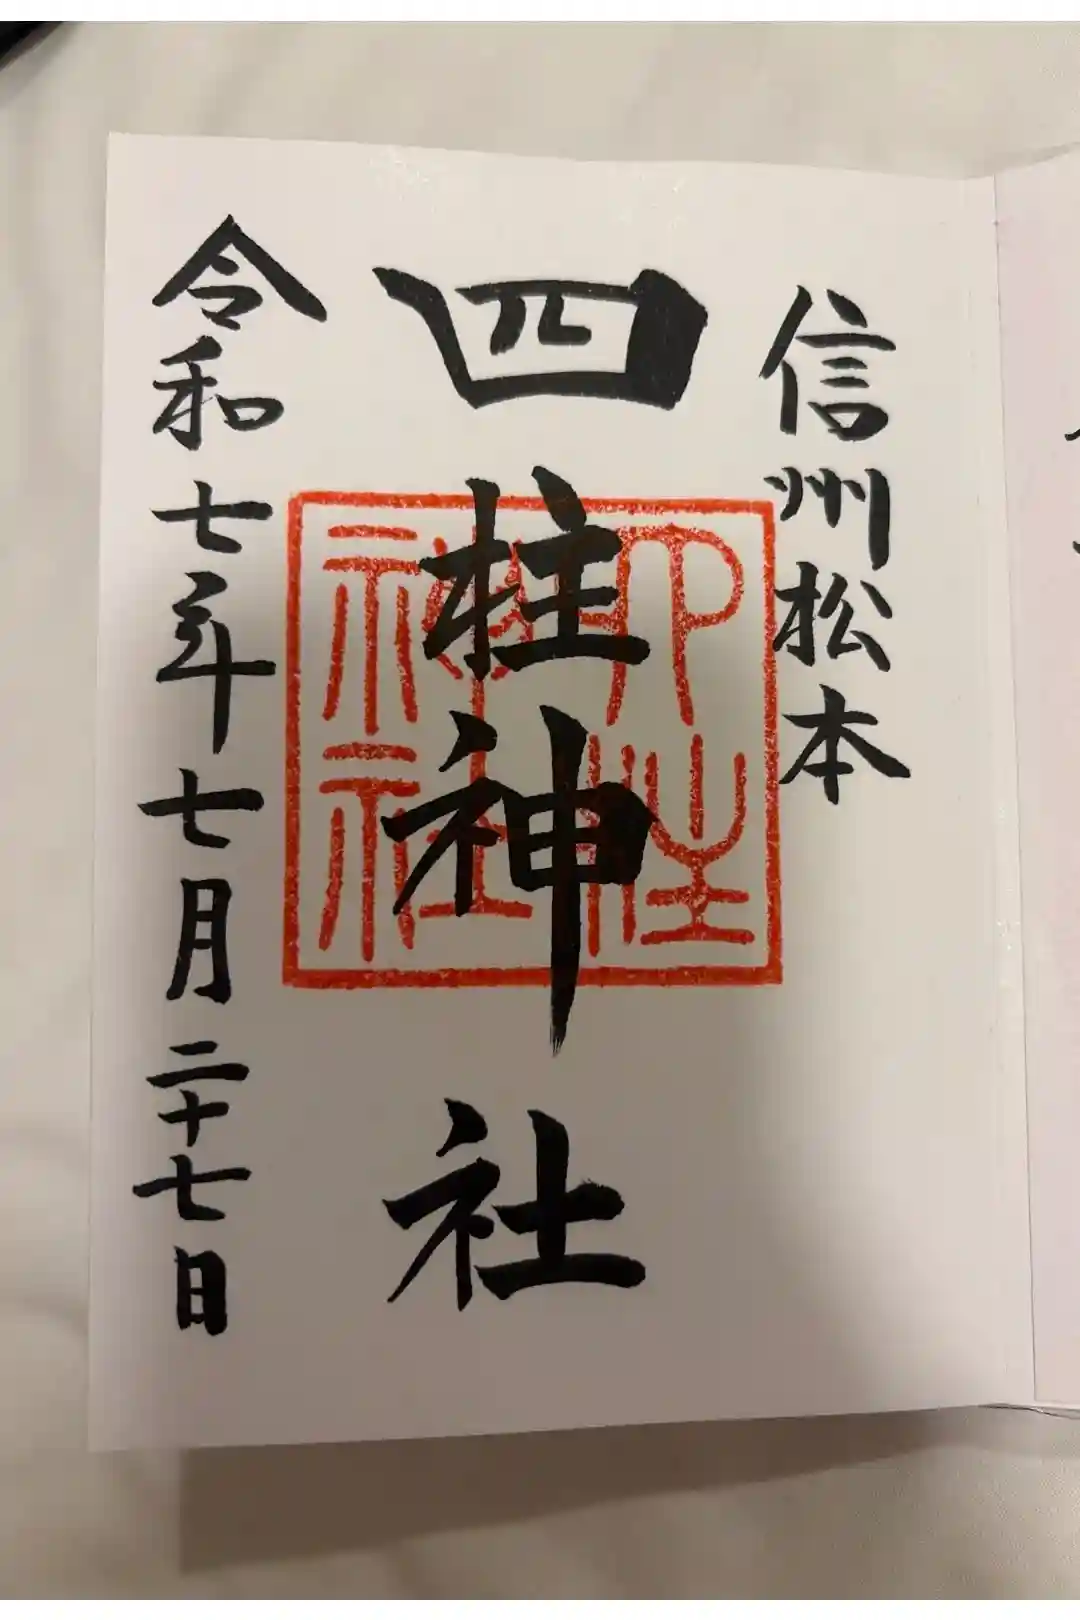 信州松本
四柱神社
四柱神社
令和七年七月二十七日